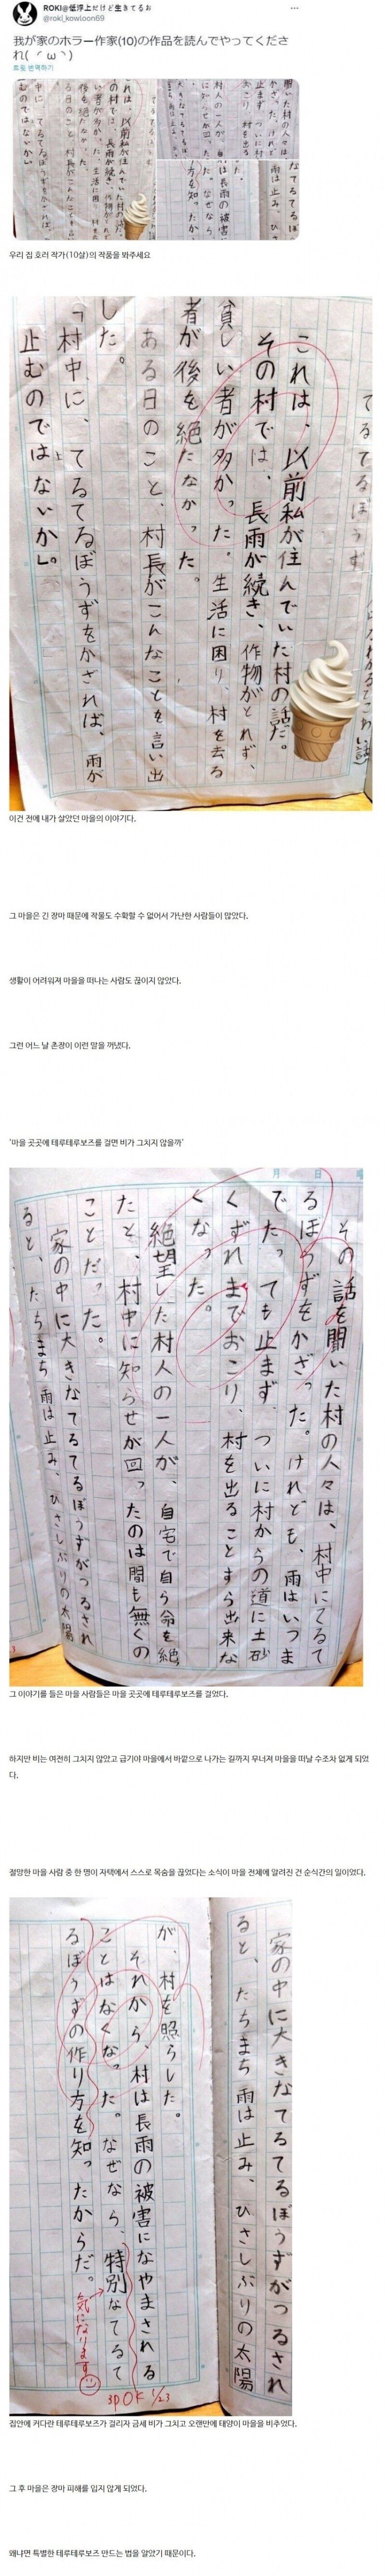 ROKI@低浮上だけど生きてるお
@roki_kowloon69
我が家のホラー作家(10)の作品を読んでやってくださ
れ(  ´ω｀ )
트윗 번역하기
우리 집 호러 작가(10살)의 작품을 봐주세요
てるてるぼうず
これは、以前私が住んでいた村の話だ。
その村では、長雨が続き、作物がとれず、
貧しい者が多かった。生活に困り、村を去る
者が後を絶たなかった。
ある日のこと、村長がこんなことを言い出
した。
「村中に、てるてるぼうずをかざれば、雨が
止むのではないか」。
이건 전에 내가 살았던 마을의 이야기다.
그 마을은 긴 장마 때문에 작물도 수확할 수 없어서 가난한 사람들이 많았다.
생활이 어려워져 마을을 떠나는 사람도 끊이지 않았다.
그런 어느 날 촌장이 이런 말을 꺼냈다.
'마을 곳곳에 테루테루보즈를 걸면 비가 그치지 않을까'
月 日
その話を聞いた村の人々は、村中にてるて
るぼうずをかざった。けれども、雨はいつま
でたっても止まず、ついに村からの道に土砂
くずれまでおこり、村を出ることすら出来な
くなった。
絶望した村人の一人が、自宅で自ら命を絶
たと、村中に知らせが回ったのは間も無くの
ことだった。
家の中に大きなてるてるぼうずがつるされ
ると、たちまち雨は止み、ひさしぶりの太陽
그 이야기를 들은 마을 사람들은 마을 곳곳에 테루테루보즈를 걸었다.
하지만 비는 여전히 그치지 않았고 급기야 마을에서 바깥으로 나가는 길까지 무너져 마을을 떠날 수조차 없게 되었
다.
절망한 마을 사람 중 한 명이 자택에서 스스로 목숨을 끊었다는 소식이 마을 전체에 알려진 건 순식간의 일이었다.
家の中に大きなてるてるぼうずがつるされ
ると、たちまち雨は止み、ひさしぶりの太陽
が、村を照らした。
それから、村は長雨の被害になやまされる
ことはなくなった。なぜなら、特別なてるて
るぼうずの作り方を知ったからだ。
気になります
3P OK 1/23
집안에 커다란 테루테루보즈가 걸리자 금세 비가 그치고 오랜만에 태양이 마을을 비추었다.
그 후 마을은 장마 피해를 입지 않게 되었다.
왜냐면 특별한 테루테루보즈 만드는 법을 알았기 때문이다.